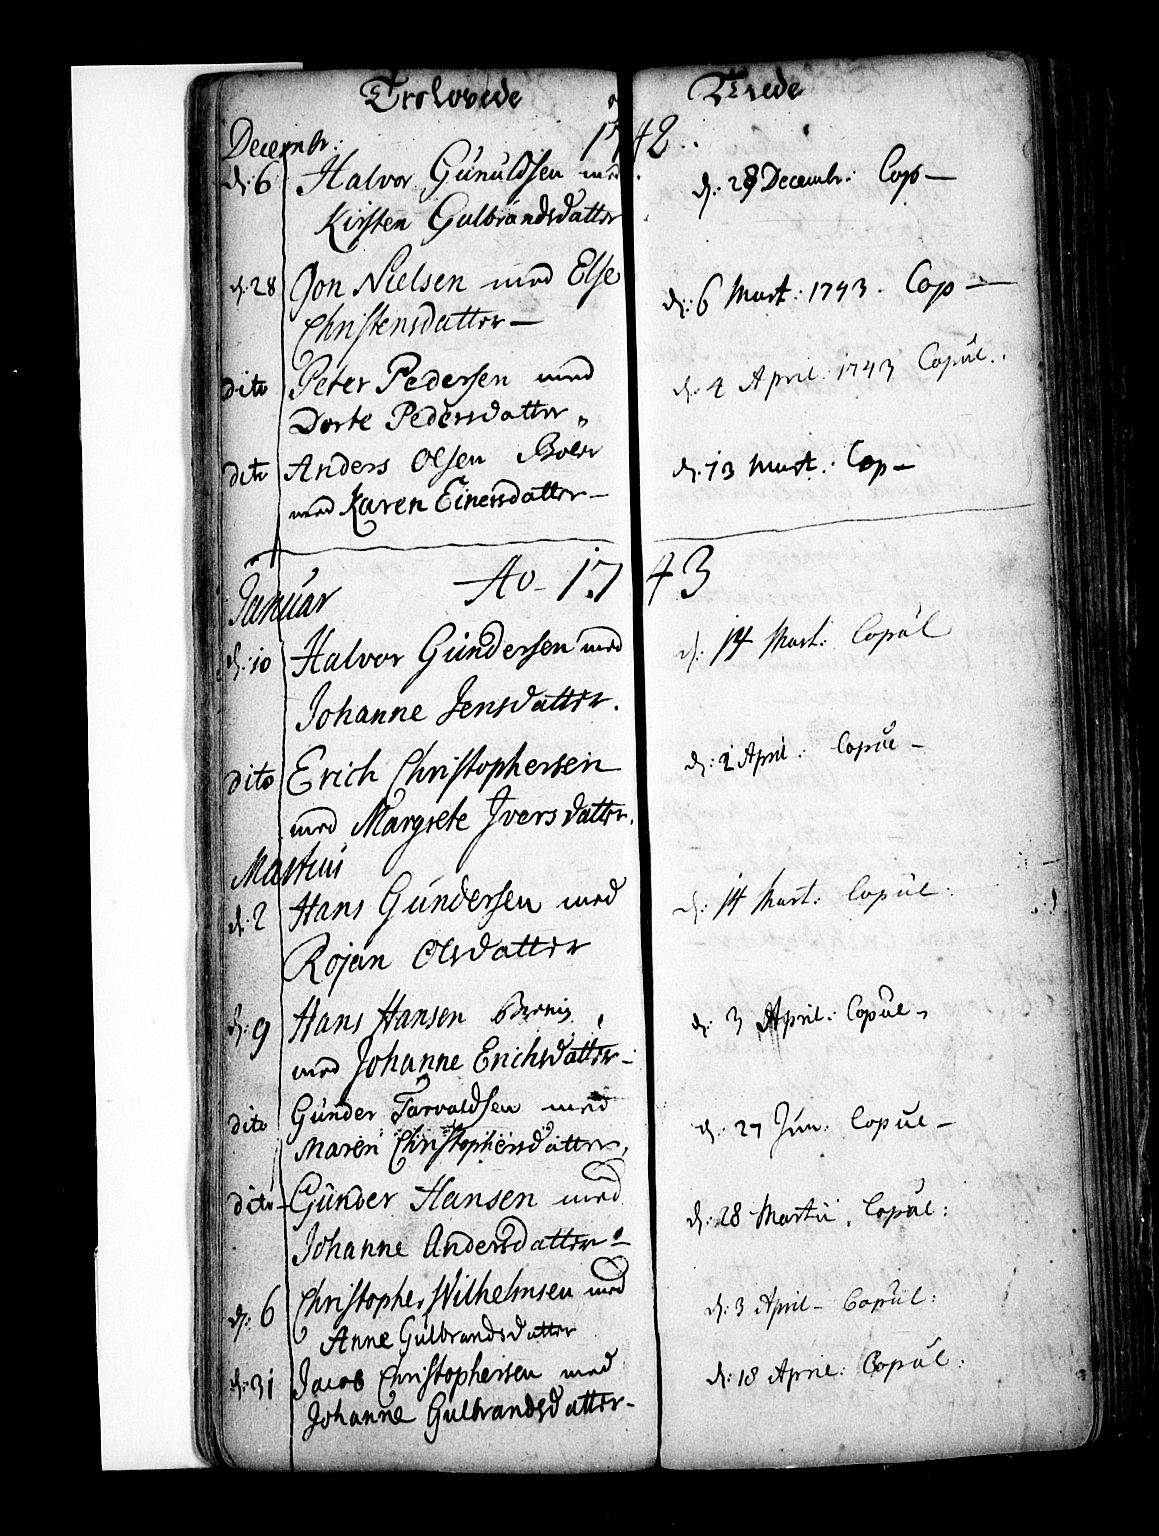 Trolovede Viede
1742
Decembr:
d: 6 Halvor Gunuldsen med d: 28 Decembr: Cop—
Kirsten Gulbrandsdatter
d: 28 Jon Nielsen med Else d: 6 Mart: 1743. Cop—
Christensdatter—
dito Peter Pedersen med d: 2 April: 1743 Copul.
Dorte Pedersdatter
dito Anders Olsen d: 13 Mart: Cop—
med Karen Einersdatter—
Ao- 1743
Januar
d: 10 Halvor Gundersen med d: 14 Mart: Copul
Johanne Jensdatter.
dito Erich Christophersen d: 2 April: Copul—
med Margrete Iversdatter.
Martius
d: 2 Hans Gundersen med d: 14 Mart: Copul:
Rojan Olsdatter
d: 9 Hans Hansen d: 3 April: Copul—
med Johanne Erichsdatter—
dito Gunder Tarvaldsen med d: 27 Jun: Copul—
Maren Christophersdatter,
dito- Gunder Hansen med d: 28 Martii. Copul:
Johanne Andersdatter—
d: 6 Christopher Wilhelmsen med d: 3 April— Copul:
Anne Gulbrandsdatter
d: 31 Jacob Christophersen med d: 18 April: Copul:
Johanne Gulbrandsdatter—